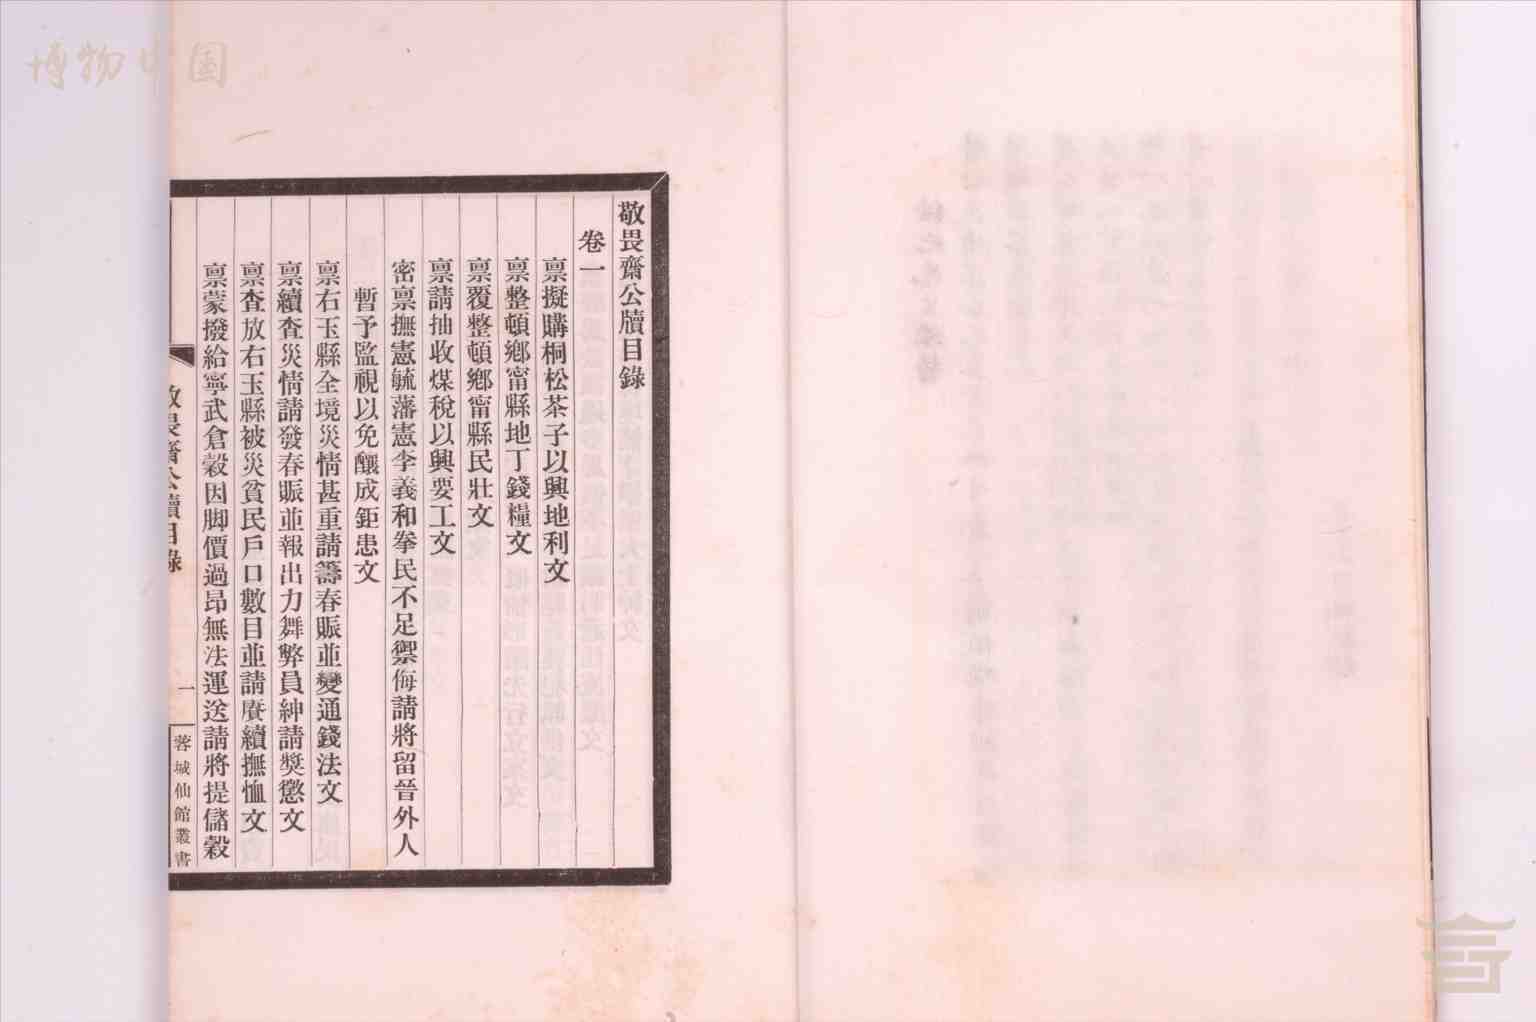 敬畏齋公牘目錄
卷一
稟擬購桐松茶子以興地利文
稟整頓鄉甯縣地丁錢糧文
稟覆整頓鄉甯縣民壯文
稟請抽收煤稅以興要工文
密稟撫憲毓藩憲李義和拳民不足禦侮請將留晉外人
暫予監視以免釀成鉅患文
稟右玉縣全境災情甚重請籌春賑並變通錢法文
稟續查災情請發春賑並報出力舞弊員紳請獎懲文
稟查放右玉縣被災貧民戶口數目並請賡續撫恤文
稟蒙撥給寧武倉穀因脚價過昂無法運送請將提儲穀
敬畏齋公牘目錄
一
蓉城仙館叢書
博物中国